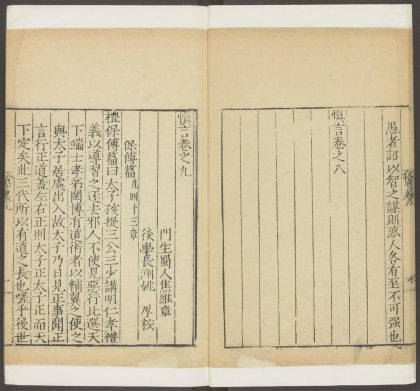 愚者詔以智之謀則惑人各有至不可強也
慎言卷之八
慎言卷之九
門生蜀人焦維章
後學長洲姚厚校
保傅篇凡四十三章
禮保傅篇曰太子孩提三公三少講明仁孝禮
義以導習之逐去邪人不使見惡行比選天
下端士孝弟閑博有道術者以輔翼之使之
與太子居處出入故太子乃目見正事聞正
言行正道蓋左右正則太子正太子正而天
下定矣此三代所以有道之長也嗟乎後世